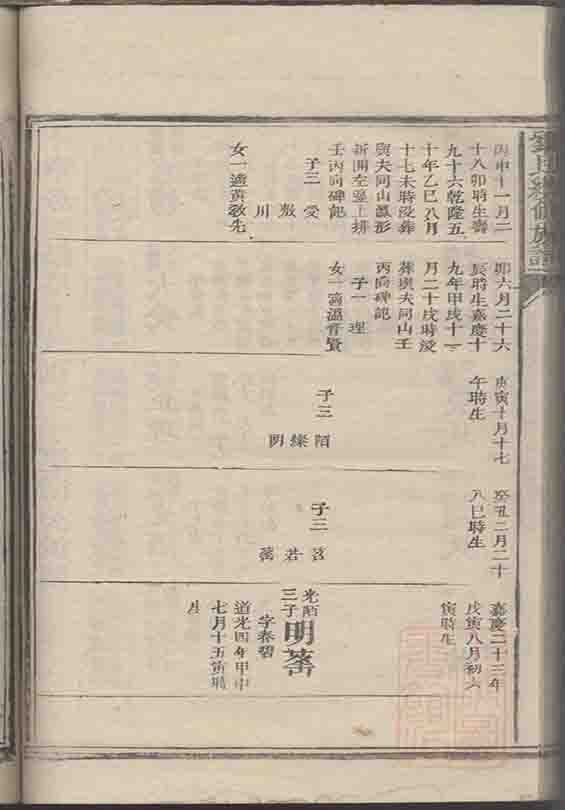 丙申十一月二
十八卯時生壽
九十六乾隆五
十年乙巳八月
十七未時沒葬
與夫同山鳳形
新開空壟上排
壬丙向碑記
子三 受
敖
川
女一適黃敦先
卯六月二十六
辰時生嘉慶十
九年甲戌十一
月二十戌時沒
葬與夫同山壬
丙向碑記
子一 理
女一適溫晉賢
庚寅十月十七
午時生
子三
陌
燦
阴
癸丑二月二十
八巳時生
子三
茗
若
嘉慶二十三年
戊寅八月初六
寅時生
光陌
三子
明
字春碧
道光四年甲申
七月十五寅時
生
氏續修族譜